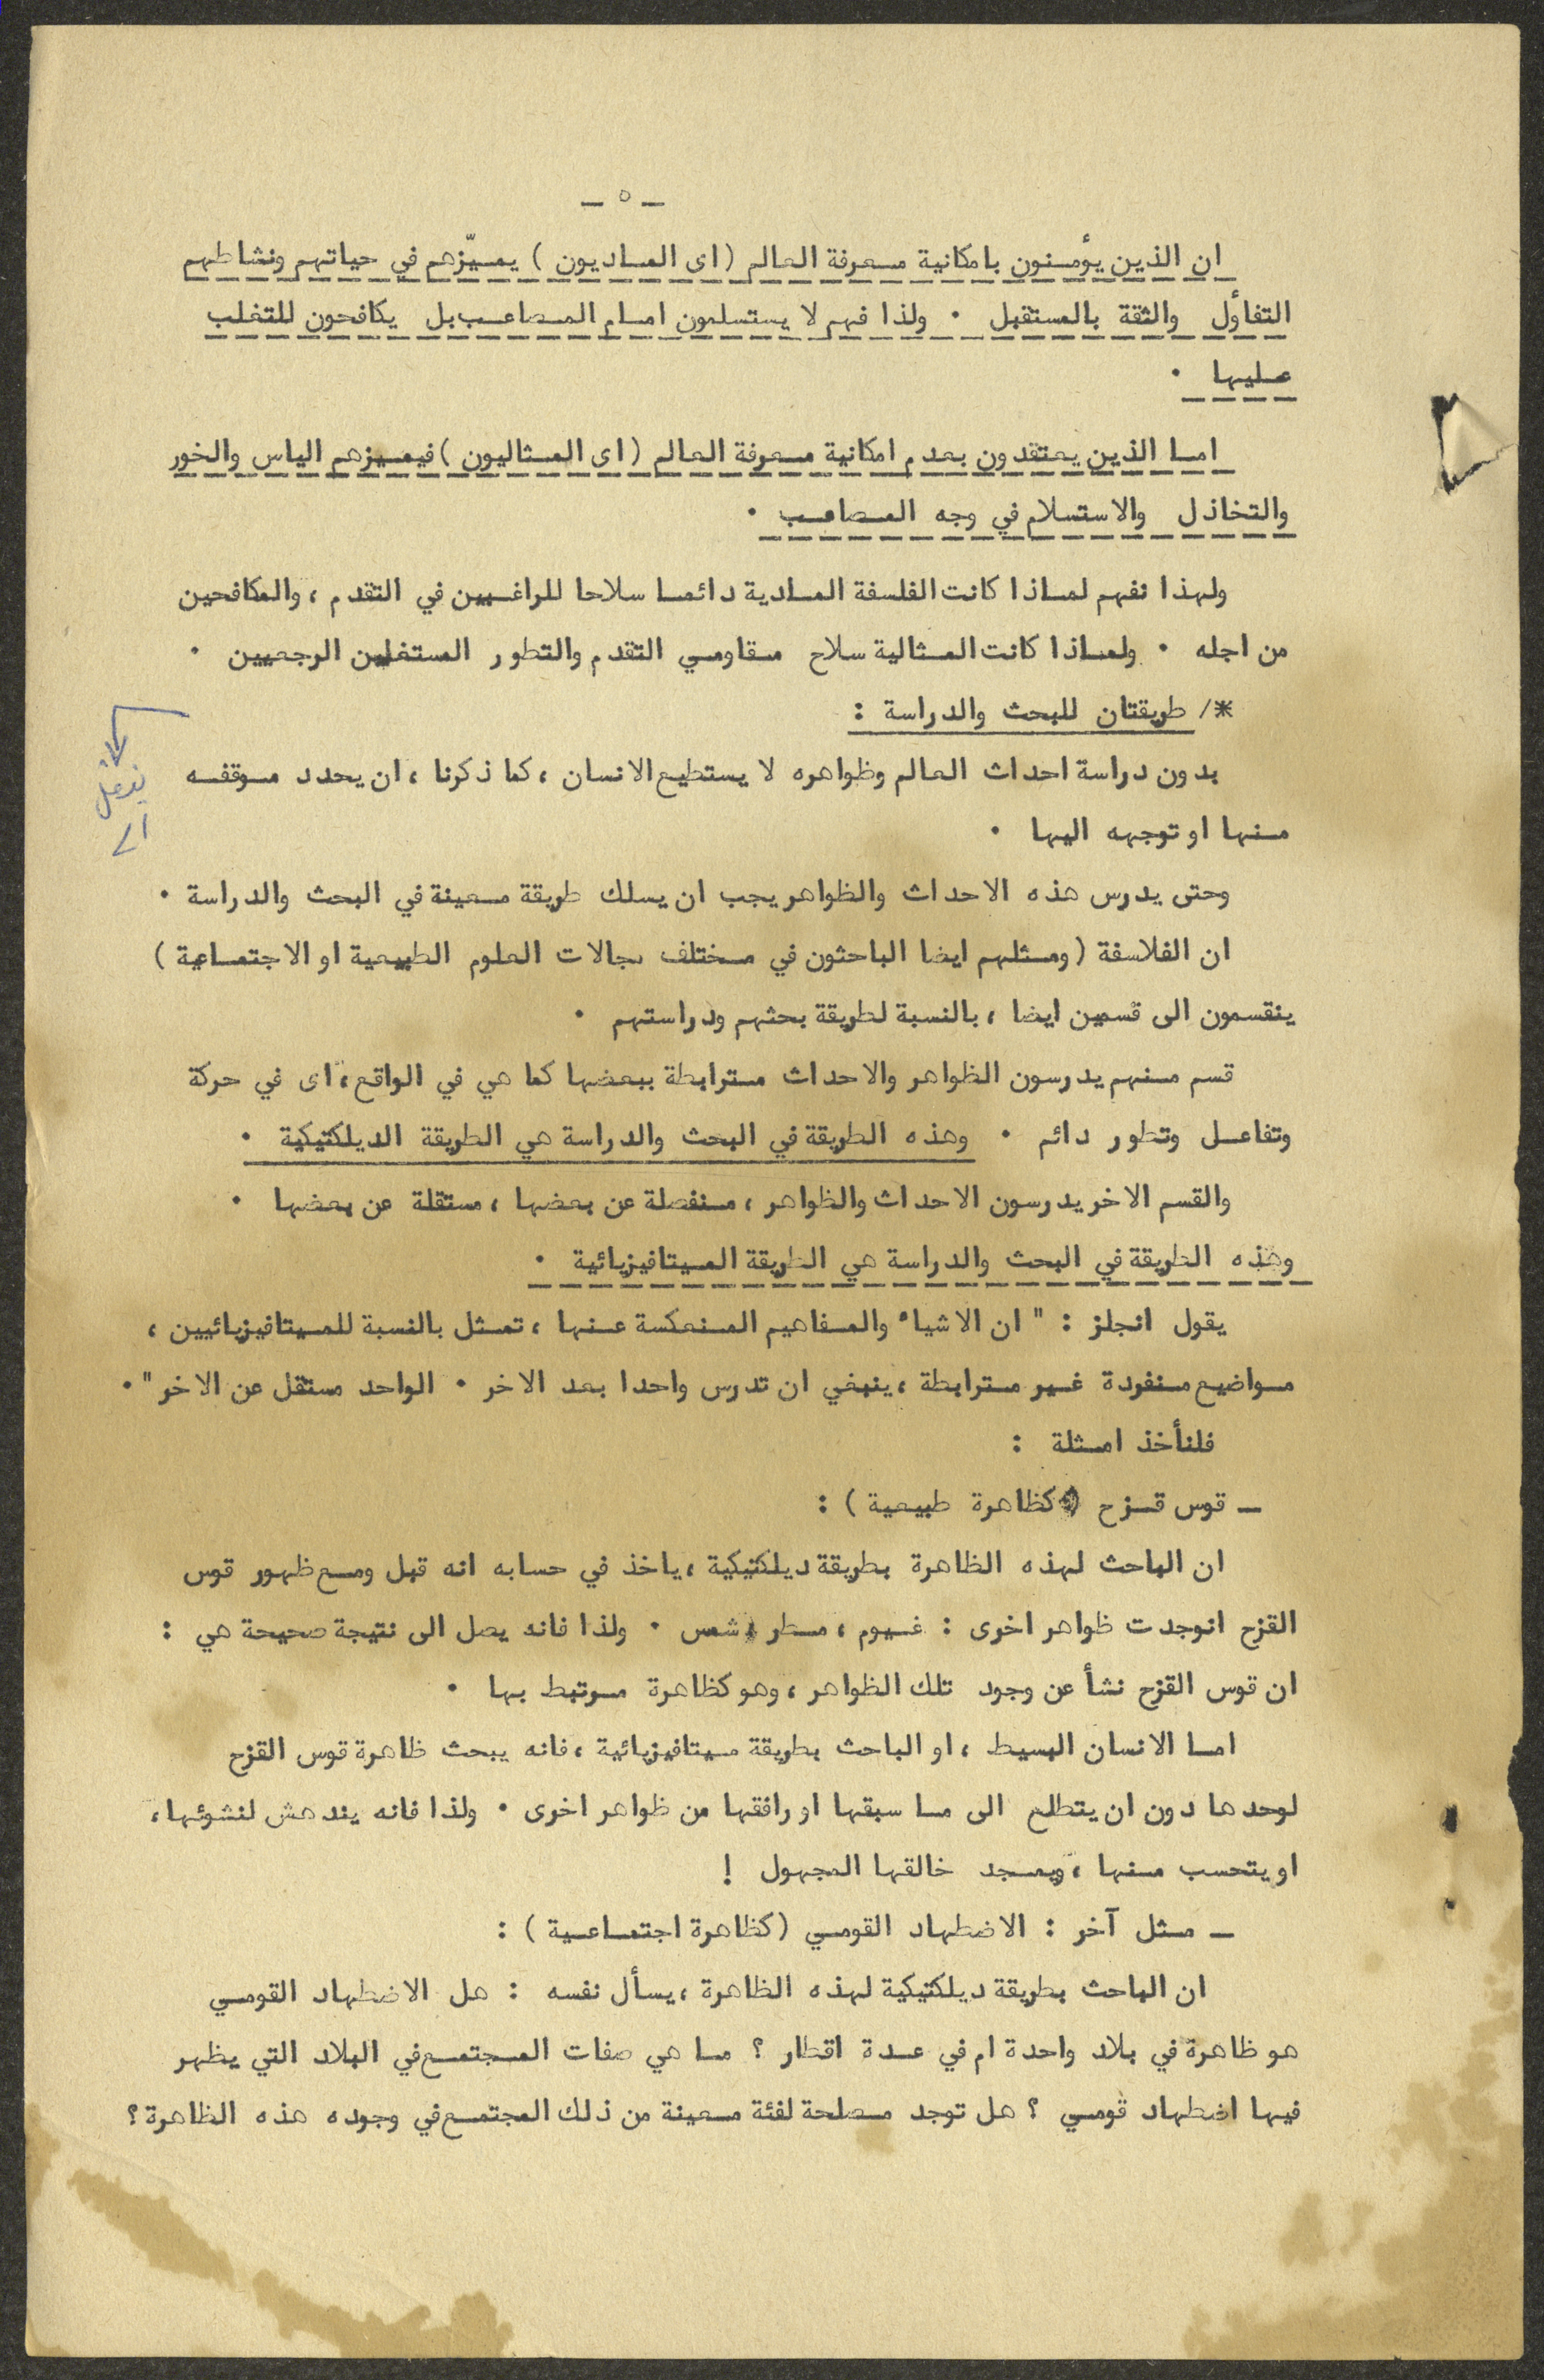 - ٥ -
ان الذين يؤمنون بامكانية معرفة العالم (اى الماديون) يميّزهم في حياتهم ونشاطهم
التفاؤل والثقة بالمستقبل ٠ ولذا فهم لا يستسلمون امام المصاعب بل يكافحون للتغلب
عليها ٠
اما الذين يعتقدون بعدم امكانية معرفة العالم (اى المثاليون) فيميزهم الياس والخور
والتخاذل والاستسلام في وجه المصاعب ٠
ولهذا نفهم لماذا كانت الفلسفة المادية دائما سلاحا للراغبين في التقدم ، والمكافحين
من اجله ٠ ولماذا كانت المثالية سلاح مقاومي التقدم والتطور المستغلين الرجعيين ٠
*/ طريقتان للبحث والدراسة :
بدون دراسة احداث العالم وظواهره لا يستطيع الانسان ، كما ذكرنا ، ان يحدد موقفه
منها او توجهه اليها ٠
وحتى يدرس هذه الاحداث والظواهر يجب ان يسلك طريقة معينة في البحث والدراسة ٠
ان الفلاسفة (ومثلهم ايضا الباحثون في مختلف مجالات العلوم الطبيعية او الاجتماعية)
ينقسمون الى قسمين ايضا ، بالنسبة لطريقة بحثهم ودراستهم ٠
قسم منهم يدرسون الظواهر والاحداث مترابطة ببعضها كما هي في الواقع ، اى في حركة
وتفاعل وتطور دائم ٠ وهذه الطريقة في البحث والدراسة هي الطريقة الديلكتيكية ٠
والقسم الاخر يدرسون الاحداث والظواهر ، منفصلة عن بعضها ، مستقلة عن بعضها ٠
وهذه الطريقة في البحث والدراسة هي الطريقة الميتافيزيائية ٠
يقول انجلز : " ان الاشياء والمفاهيم المنعكسة عنها ، تمثل بالنسبة للميتافيزيائيين ،
مواضيع منفردة غير مترابطة ، ينبغي ان تدرس واحدا بعد الاخر ٠ الواحد مستقل عن الاخر " ٠
فلنأخذ امثلة :
- قوس قزح (كظاهرة طبيعية) :
ان الباحث لهذه الظاهرة بطريقة ديلكتيكية ، ياخذ في حسابه انه قبل ومع ظهور قوس
القزح انوجدت ظواهر اخرى : غيوم ، مطر ، شمس ٠ ولذا فانه يصل الى نتيجة صحيحة هي :
ان قوس القزح نشأ عن وجود تلك الظواهر ، وهو كظاهرة مرتبط بها ٠
اما الانسان البسيط ، او الباحث بطريقة ميتافيزيائية ، فانه يبحث ظاهرة قوس القزح
لوحدها دون ان يتطلع الى ما سبقها او رافقها من ظواهر اخرى ٠ ولذا فانه يندهش لنشوئها ،
او يتحسب منها ، ويمجد خالقها المجهول !
- مثل آخر : الاضطهاد القومي (كظاهرة اجتماعية) :
ان الباحث بطريقة ديلكتيكية لهذه الظاهرة ، يسأل نفسه : هل الاضطهاد القومي
هو ظاهرة في بلاد واحدة ام في عدة اقطار ؟ ما هي صفات المجتمع في البلاد التي يظهر
فيها اضطهاد قومي ؟ هل توجد مصلحة لفئة معينة من ذلك المجتمع في وجوده هذه الظاهرة ؟